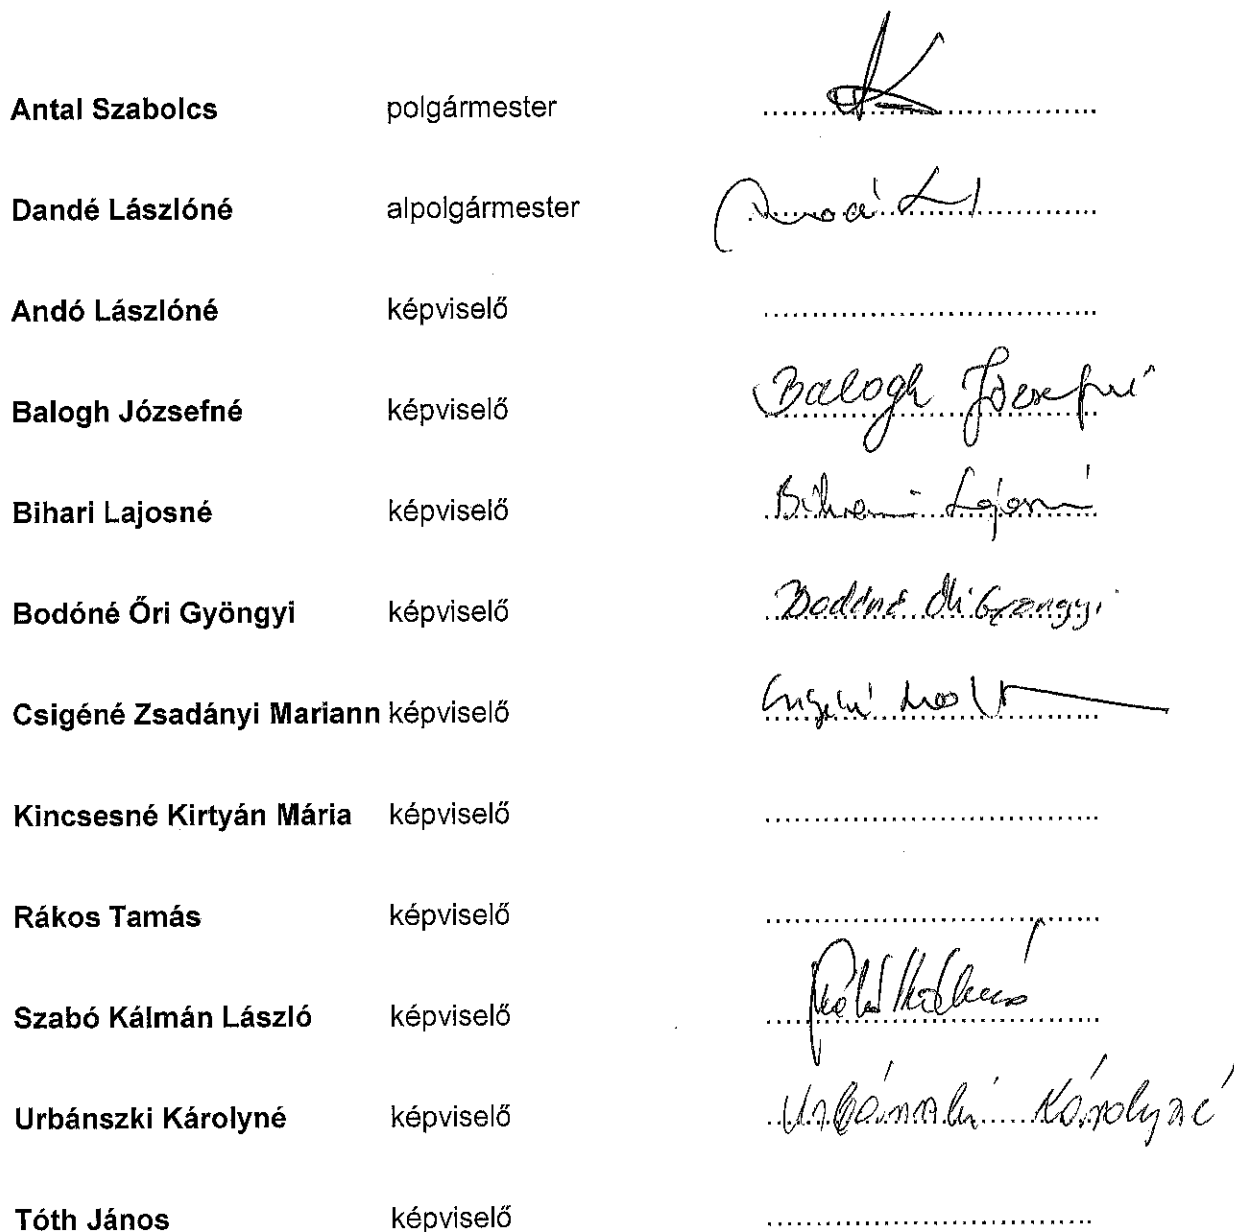 Antal Szabolcs polgármester ................................
Dandé Lászlóné alpolgármester ................................
Andó Lászlóné képviselő ................................
Balogh Józsefné képviselő Balogh Józsefné
Bihari Lajosné képviselő Bihari Lajosné
Bodóné Őri Gyöngyi képviselő Bodóné Őri Gyöngyi
Csigéné Zsadányi Mariann képviselő Csigéné
Kincsesné Kirtyán Mária képviselő ................................
Rákos Tamás képviselő ................................
Szabó Kálmán László képviselő ................................
Urbánszki Károlyné képviselő Urbánszki Károlyné
Tóth János képviselő ................................